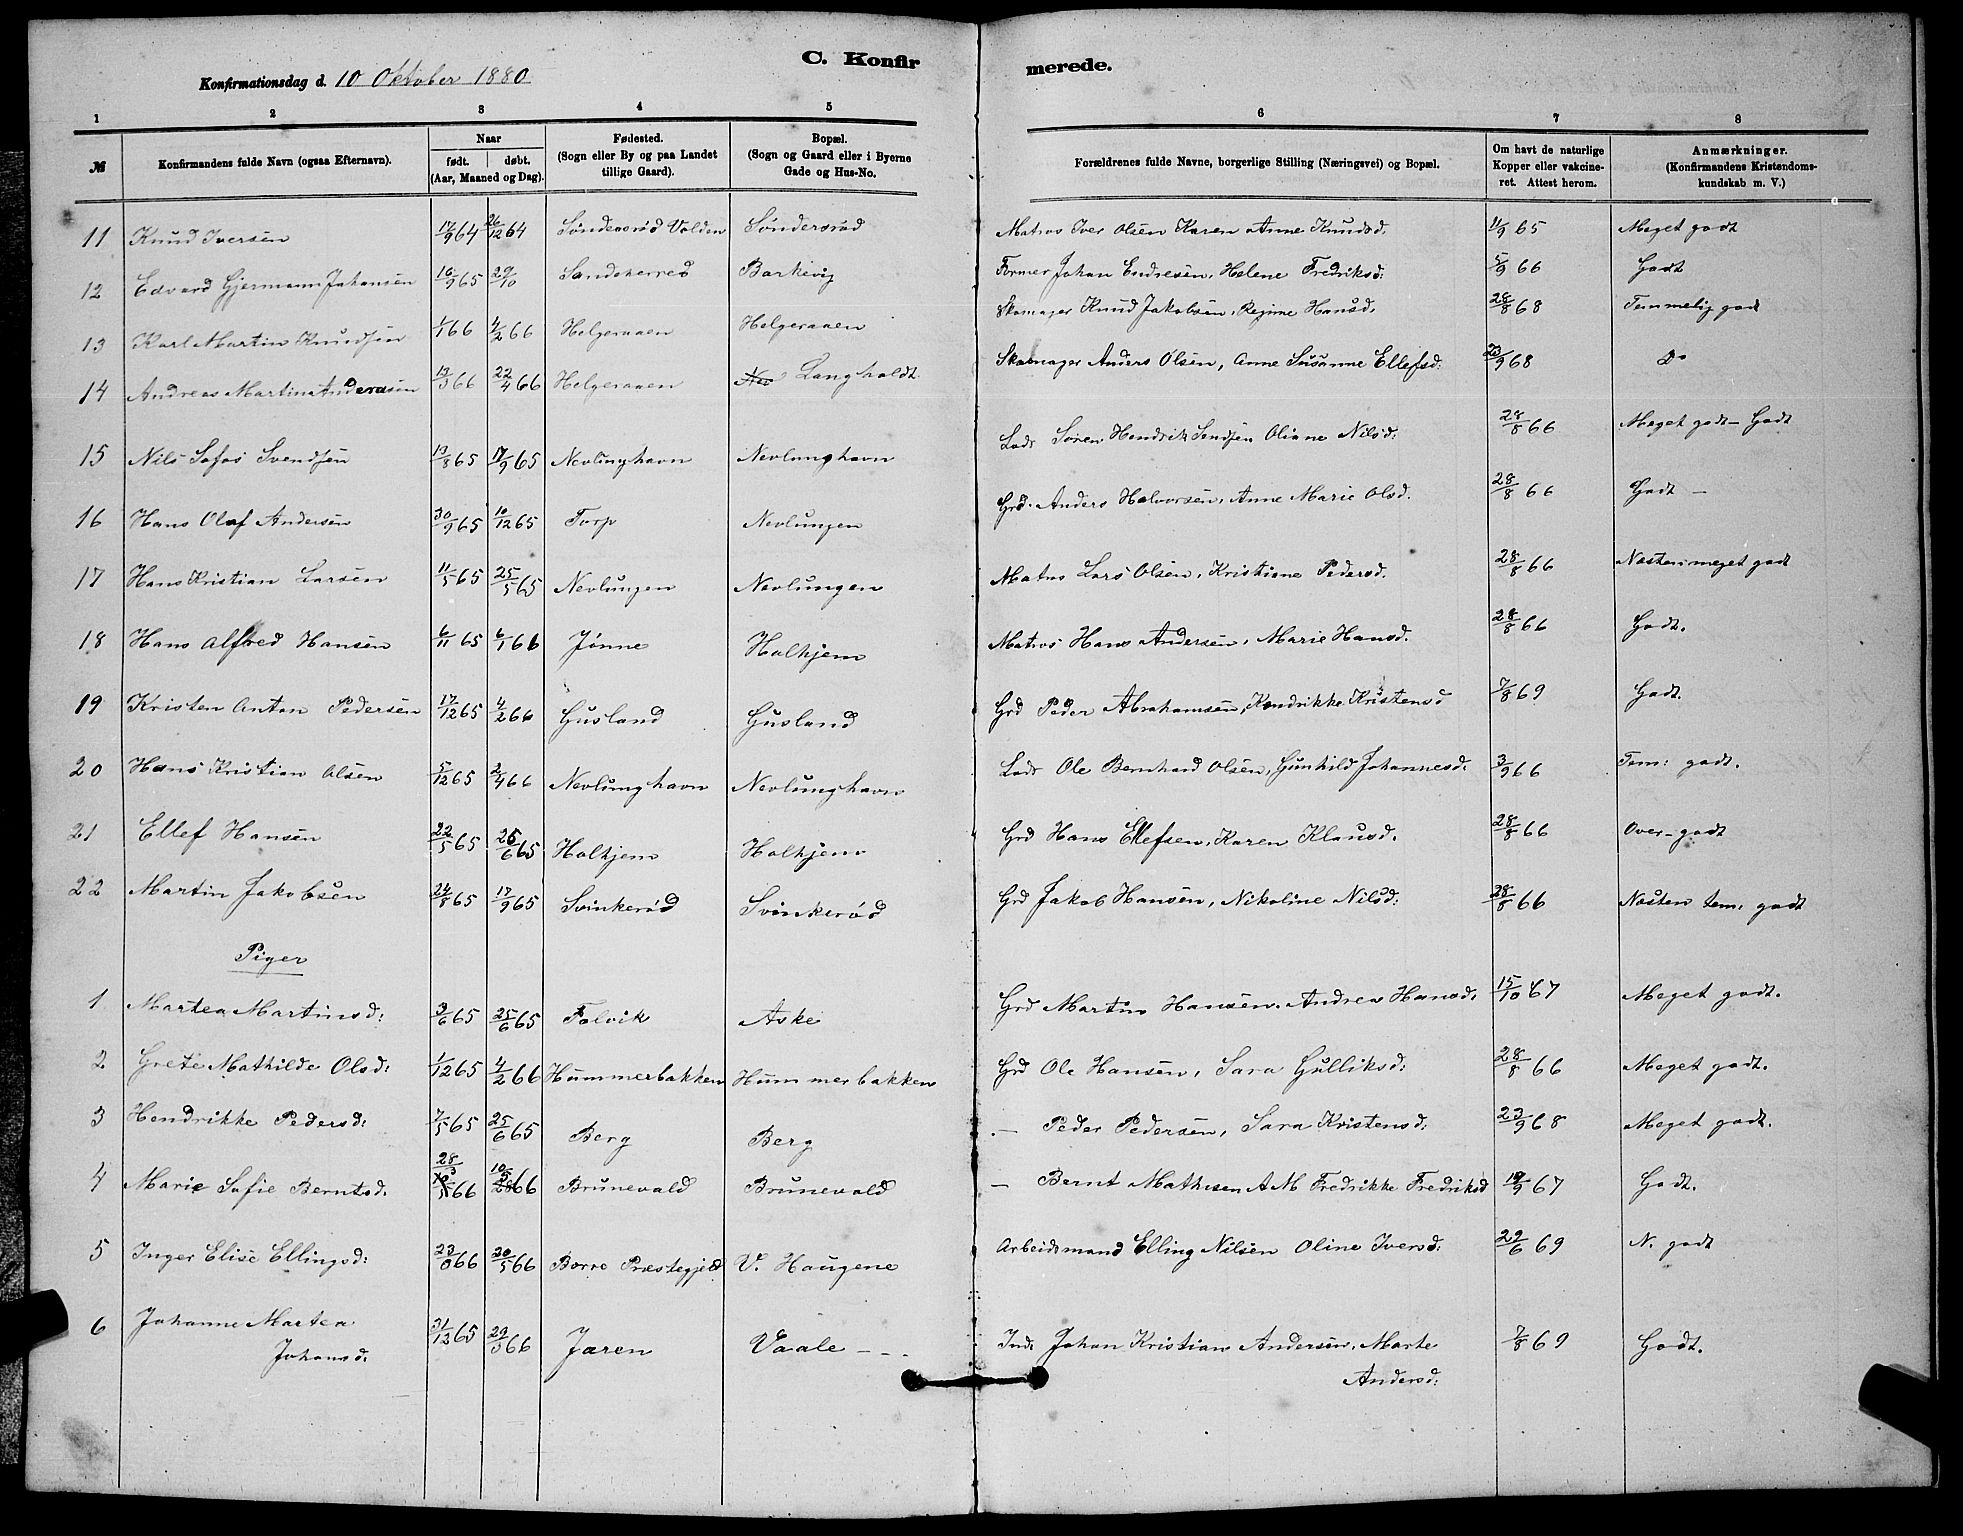 C. Konfirmerede.
Konfirmationsdag d. 10 Oktober 1880
1 2 3 4 5 6 7 8
№ | Konfirmandens fulde Navn (ogsaa Efternavn). | Naar født. | døbt. (Aar, Maaned og Dag). | Fødested. (Sogn eller By og paa Landet tillige Gaard). | Bopæl. (Sogn og Gaard eller i Byerne Gade og Hus-No. | Forældrenes fulde Navne, borgerlige Stilling (Næringsvei) og Bopæl. | Om havt de naturlige Kopper eller vakcineret. Attest herom. | Anmærkninger. (Konfirmandens Kristendomskundskab m. V.)
11 Knud Iversen 17/9 64 26/12 64 Søndersrød Volden Søndersrød Matros Iver Olsen Karen Anne Knudsd. 11/9 65 Meget godt
12 Edvard Gjermann Johansen 10/9 65 29/10 Sandeherred Barkevig Former Johan Endresen, Helene Fredriksd: 5/9 66 Godt
13 Karl Martin Knudsen 1/1 66 4/2 66 Helgeraaen Helgeraaen Skomager Knud Jakobsen, Regine Hansd. 28/8 68 Temmelig godt
14 Andreas Martin Andersen 13/3 66 22/4 66 Helgeraaen Langholdt Skomager Anders Olsen, Anne Susanne Ellefsd: 23/9 68 Do
15 Nils Sofus Svendsen 13/8 65 17/9 65 Nevlunghavn Nevlunghavn Lods Søren Hendrik Sendsen Oliane Nilsd: 28/8 66 Meget godt - Godt
16 Hans Olaf Andersen 30/9 65 10/12 65 Torp Nevlungen Grd. Anders Halvorsen, Anne Marie Olsd. 28/8 66 Godt -
17 Hans Kristian Larsen 11/5 65 25/5 65 Nevlungen Nevlungen Matros Lars Olsen, Kristiane Pedersd. 28/8 66 Næsten meget godt
18 Hans Alfred Hansen 6/11 65 6/1 66 Jønne Halhjem Matros Hans Andersen, Marie Hansd. 28/8 66 Godt.
19 Kristen Anton Pedersen 17/12 65 4/2 66 Gusland Gusland Grd Peder Abrahamsen, Hendrikke Kristensd 7/8 69 Godt.
20 Hans Kristian Olsen 5/12 65 2/4 66 Nevlunghavn Nevlunghavn Lods Ole Bernhard Olsen, Gunhild Johannesd. 3/9 66 Tem: godt.
21 Ellef Hansen 22/5 65 25/6 65 Halhjem Halhjem Grd Hans Ellefsen, Karen Klausd. 28/8 66 Over-godt
22 Martin Jakobsen 24/8 65 17/9 65 Svinkerød Svinkerød Grd Jakob Hansen, Nikoline Nilsd: 28/8 66 Næsten tem: godt
Piger
1 Martea Martinsd: 3/6 65 25/6 65 Falvik Aske Grd Martin Hansen, Andrea Hansd. 15/10 67 Meget godt.
2 Grete Mathilde Olsd: 1/12 65 4/2 66 Hummerbakken Hummerbakken Grd Ole Hansen, Sara Gulliksd: 28/8 66 Meget godt.
3 Hendrikke Pedersd: 7/5 65 25/6 65 Berg Berg - Peder Pedersen, Sara Kristensd: 23/9 68 Meget godt.
4 Marie Sofie Berntsd. 28/3 66 10/5 66 Brunevald Brunevald - Bernt Mathisen A M Fredrikke Fredriksd 19/9 67 Godt.
5 Inger Elise Ellingsd: 23/ 66 20/5 66 Borre Præstegjeld V. Haugene Arbeidsmand Elling Nilsen Oline Iversd: 22/6 69 N. godt
6 Johanne Martea
Johansd. 31/12 65 29/3 66 Jaren Vaale - - . Ind. Johan Kristian Andersen, Marte 7/8 69 Godt.
Andersd: